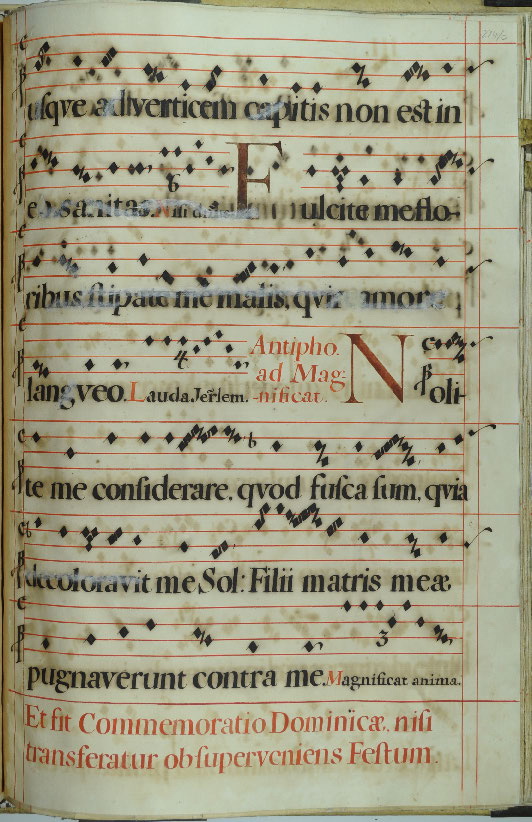 usque ad verticem capitis non est in
eo sanitas. Fulcite me flo-
ribus stipate me malis, qvia amore
langveo. Lauda Jer̃lem. Antipho. ad Mag: -nificat. Noli-
te me considerare, qvod fusca sum, qvia
decoloravit me Sol: Filii matris meæ
pugnaverunt contra me. Magnificat anima.
Et fit Commemoratio Dominicæ, nisi
transferatur ob superveniens Festum.